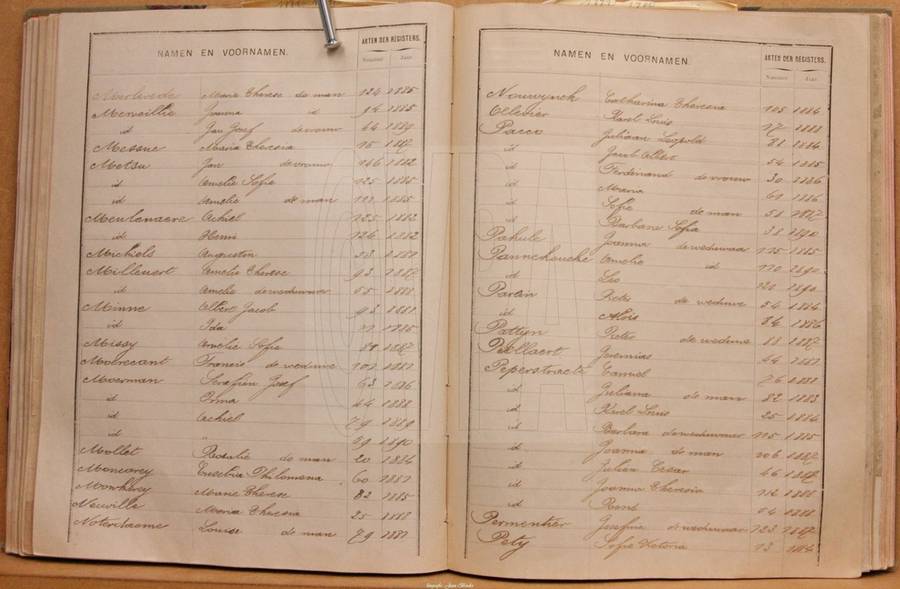 NAMEN EN VOORNAMEN. AKTEN DER REGISTERS.
Nummer Jaar
Marie Therese de man 124 1885
Merveillie Joanna id 94 1885
id Jan Josef de vrouw 44 1889
Messue Maria Theresia 15 1887
Metsu Jan de vrouw 146 1882
id Amelie Sofie 125 1885
id Amelie de man 1885
Meulenaere Achiel 125 1882
id Henri 126 1882
Michiels Augustin
Milleuert Amelie Therese 93 1887
id Amelie de weduwnaar 55 1888
Minne Albert Jacob 93 1881
id Ida 1885
Missy Amelie Sofie 1887
Francis de weduwe 1881
Moerman Serafien Josef 63 1886
id Irma 44 1888
id Achiel 79 1889
id " 69 1890
Mollet Rosalie de man 20 1884
Monearey Eusebia Philomena 60 1887
Marie Therese 82 1885
Neuville Maria Theresa 25 1888
Noterdaeme Louise de man 79 1881
NAMEN EN VOORNAMEN. AKTEN DER REGISTERS.
Nummer Jaar
Nouwynck Catharina Theresia 105 1884
Ollevier Karel Louis 17 1888
Pacco Juliaan Leopold 81 1884
id Jacob Albert 54 1885
id Ferdinand de vrouw 30 1886
id Maria 61 1886
id Sofie de man 51 1887
id Barbara Sofia 38 1890
Pahule Joanna de weduwnaar 115 1885
Pannekoucke Amelie id 110 1890
id Leo 120 1890
Parein Pieter de weduwe 54 1884
id Aloïs 84 1886
Pattyn Pieter de weduwe 88 1887
Peellaert Jeremias 44 1887
Peperstraete Camiel 76 1888
id Juliana de man 82 1883
id Karel Louis 25 1884
id Barbara de weduwnaar 115 1885
id Joanna de man 106 1887
id Julien Cesar 46 1887
id Joanna Theresia 114 1888
id René 54 1888
Permentier Josefine de weduwnaar 123 1887
Pety Sofie Victoria 13 1884